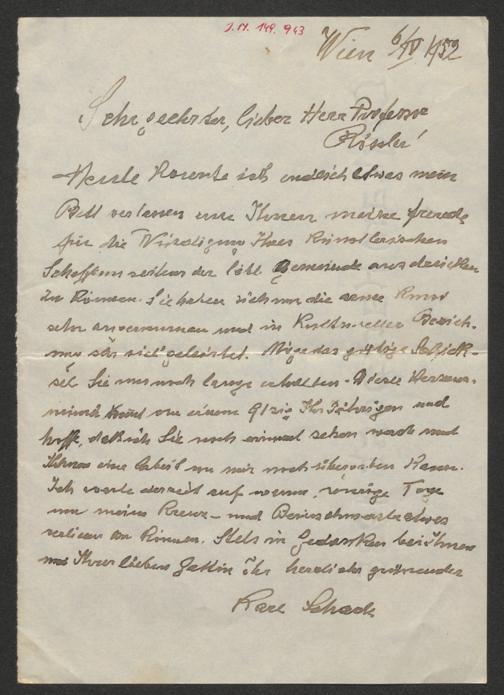 J.N. 149.943
Wien 6/IV 1952
Sehr geehrter, lieber Herr Professor
Rössler!
Heute konnte ich endlich etwas mein
Bett verlassen um Ihnen meine Freude
für die Würdigung Ihres künstlerischen
Schaffens seitens der löbl Gemeinde ausdrücken
zu können. Sie haben sich um die arme Kunst
sehr angenommen und in kultureller Bezieh-
ung sehr viel geleistet. Möge das gütige Schick-
sal Sie uns noch lange erhalten. Dieser Herzens-
wunsch kommt von einem 91zig Jährigen und
hoffe, daß ich Sie noch einmal sehen werde und
Ihnen eine Arbeit von mir noch übergeben kann.
Ich warte derzeit auf warme, sonnige Tage
um meine Kreuz- und Beinschmerzen etwas
verlieren zu können. Stets in Gedanken bei Ihnen
und Ihrer lieben Gattin Ihr herzlichst grüssender
Karl Schack